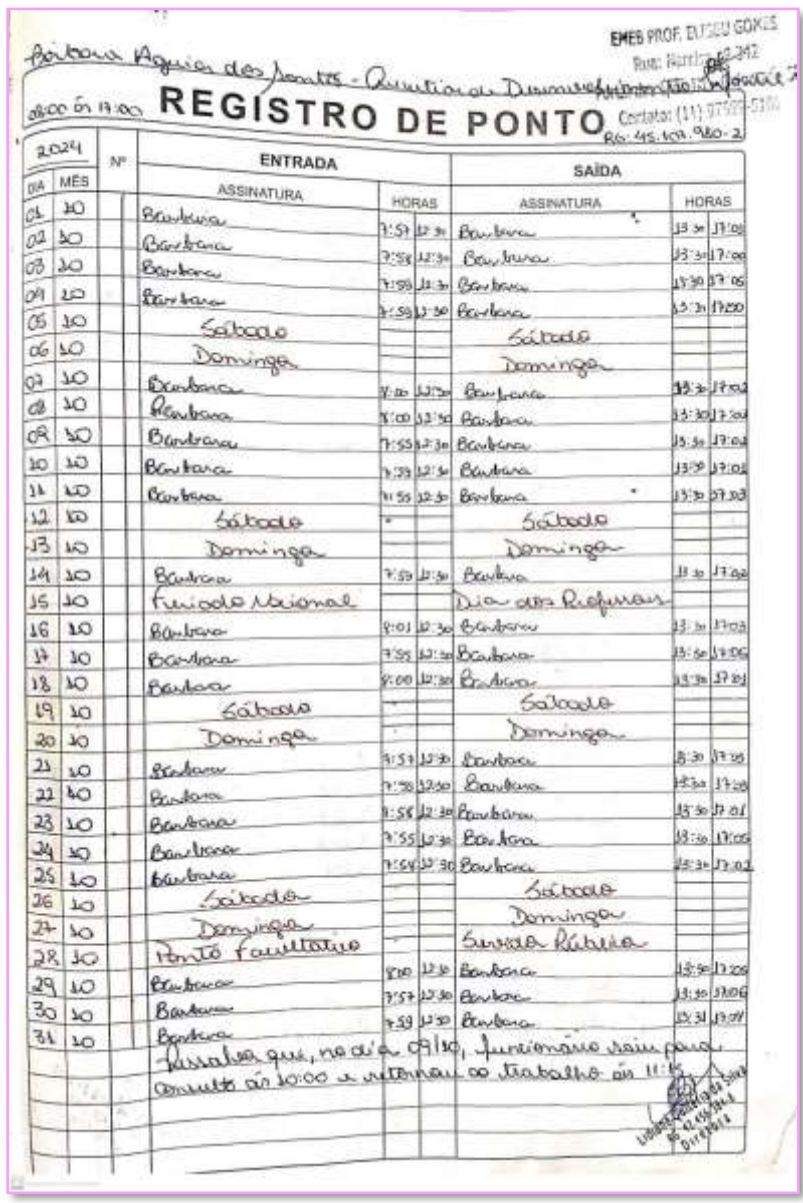 EMEB PROF. ELISEU GOMES
Bárbara Aguiar dos Santos - Auxiliar de Desenvolvimento Infantil
08:00 às 17:00 REGISTRO DE PONTO Contato: (11)
RG: 45.107.980-2
2024 Nº ENTRADA SAÍDA
DIA MÊS ASSINATURA HORAS ASSINATURA HORAS
01 10 Barbara 7:57 12:30 Barbara 13:30 17:03
02 10 Barbara 7:58 12:30 Barbara 13:30 17:00
03 10 Barbara 7:59 12:30 Barbara 13:30 17:05
04 10 Barbara 7:59 12:30 Barbara 13:30
05 10 Sábado Sábado
06 10 Domingo Domingo
07 10 Barbara 8:00 12:30 Barbara 13:30 17:02
08 10 Barbara 8:00 12:30 Barbara 13:30
09 10 Barbara 7:55 12:30 Barbara 13:30 17:02
10 10 Barbara 7:59 12:30 Barbara 13:30 17:01
11 10 Barbara 7:55 12:30 Barbara 13:30 17:03
12 10 Sábado Sábado
13 10 Domingo Domingo
14 10 Barbara 7:59 12:30 Barbara 13:30 17:02
15 10 Feriado Nacional Dia dos Professores
16 10 Barbara 8:01 12:30 Barbara 13:30 17:03
17 10 Barbara 7:55 12:30 Barbara 13:30 17:05
18 10 Barbara 8:00 12:30 Barbara 13:30 17:01
19 10 Sábado Sábado
20 10 Domingo Domingo
21 10 Barbara 7:57 12:30 Barbara 13:30 17:03
22 10 Barbara 7:58 12:30 Barbara 13:30 17:03
23 10 Barbara 7:58 12:30 Barbara 13:30 17:01
24 10 Barbara 7:55 12:30 Barbara 13:30 17:05
25 10 Barbara 12:30 Barbara 13:30 17:02
26 10 Sábado Sábado
27 10 Domingo Domingo
28 10 Ponto Facultativo Servidor Público
29 10 Barbara 8:00 12:30 Barbara 13:30 17:05
30 10 Barbara 7:57 12:30 Barbara 13:30 17:06
31 10 Barbara 7:59 12:30 Barbara 13:31 17:04
Ressalva que, no dia 09/10, funcionário saiu para
consulta às 10:00 e retornou ao trabalho às 11:15.
Diretora